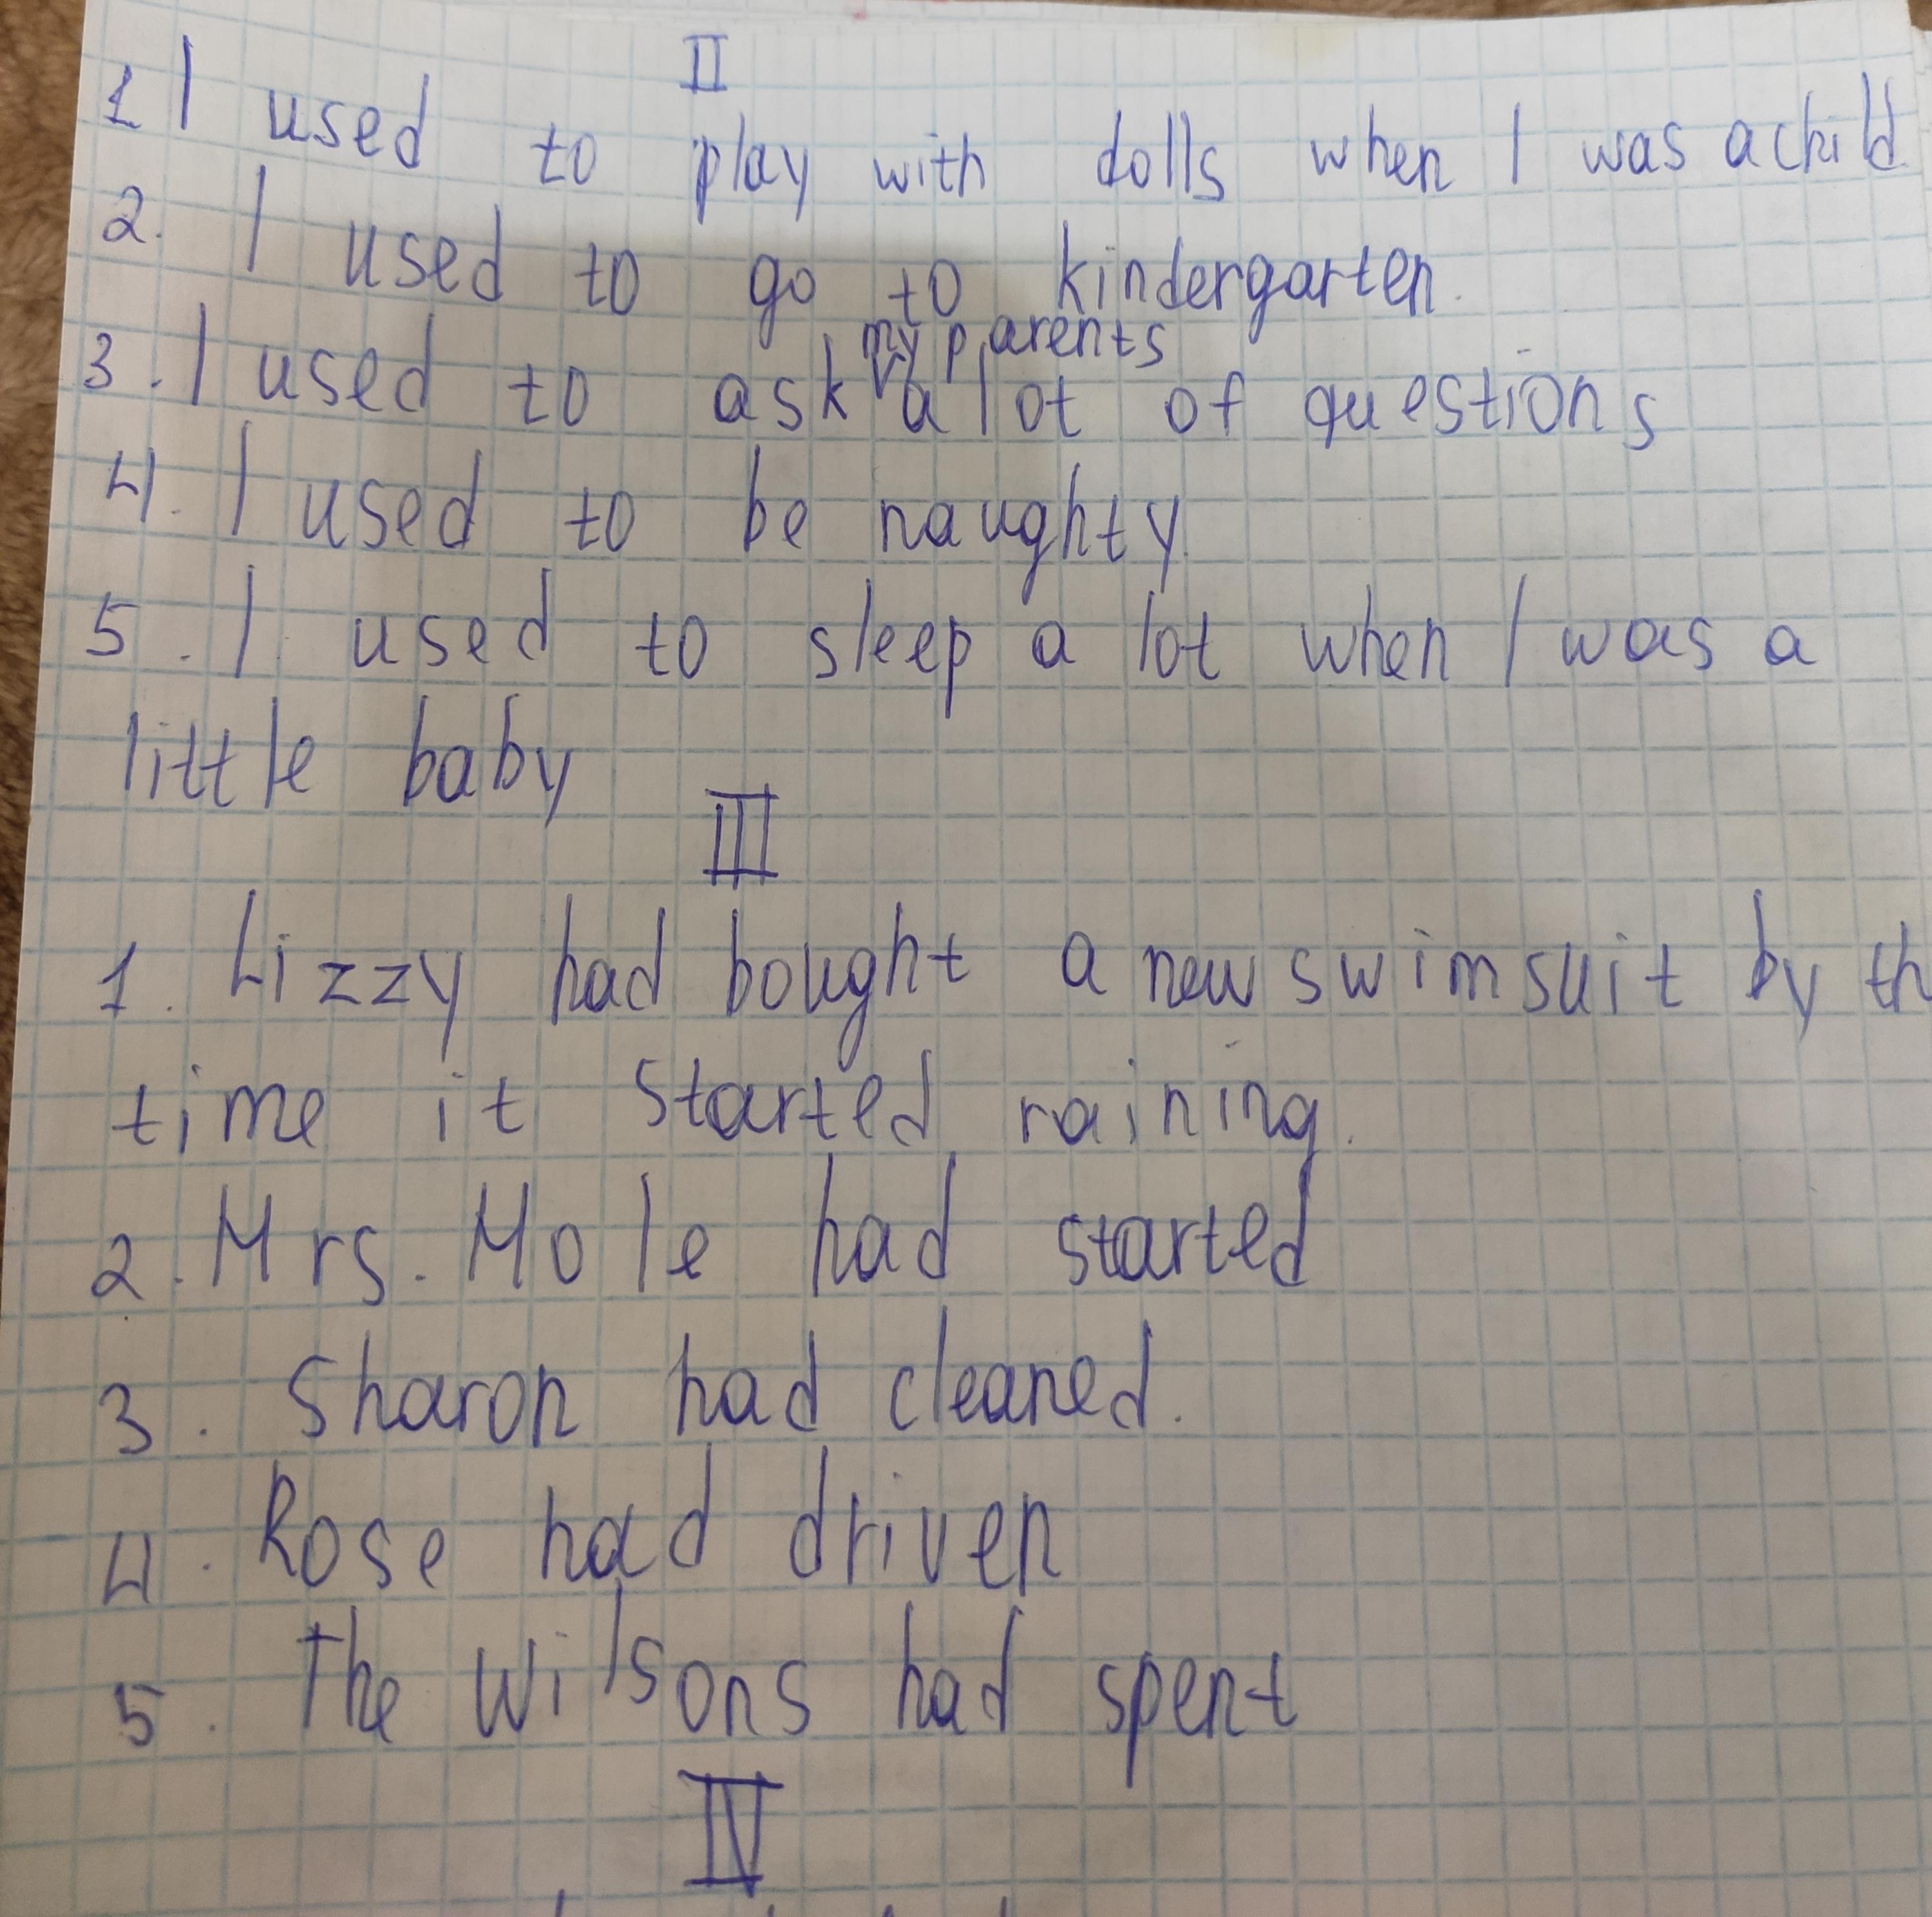 II
1 I used to play with dolls when I was a child
2. I used to go to kindergarten.
my parents
3. I used to ask a lot of questions
4. I used to be naughty
5. I used to sleep a lot when I was a
little baby
III
1. Lizzy had bought a new swimsuit by th
time it started raining.
2. Mrs. Mole had started
3. Sharon had cleaned.
4. Rose had driven
5. The Wilsons had spent
IV